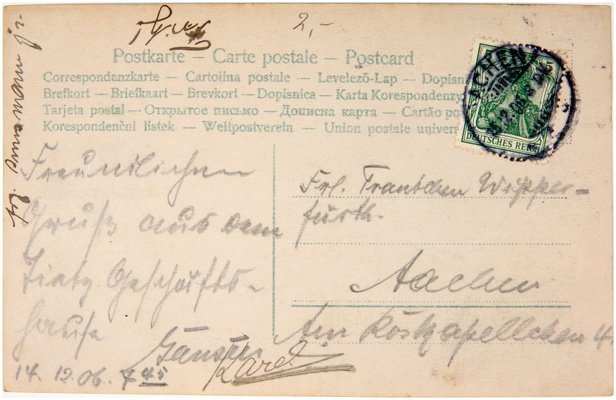 2,-
Postkarte — Carte postale — Postcard
Correspondenzkarte — Cartolina postale — Levelező-Lap — Dopisn
Brefkort — Briefkaart — Brevkort — Dopisnica — Karta Korespondenzy
Tarjeta postal — Открытое письмо — Дописна карта — Cartão po
Korespondenční listek — Weltpostverein — Union postale univer
DEUTSCHES REICH
Freundlichen
Gruß aus dem
Tietz Geschäfts-
hause
Karel
14. 12. 06. 7 45
Frl. Trautchen Wipper-
fürth.
Aachen
Am
4.